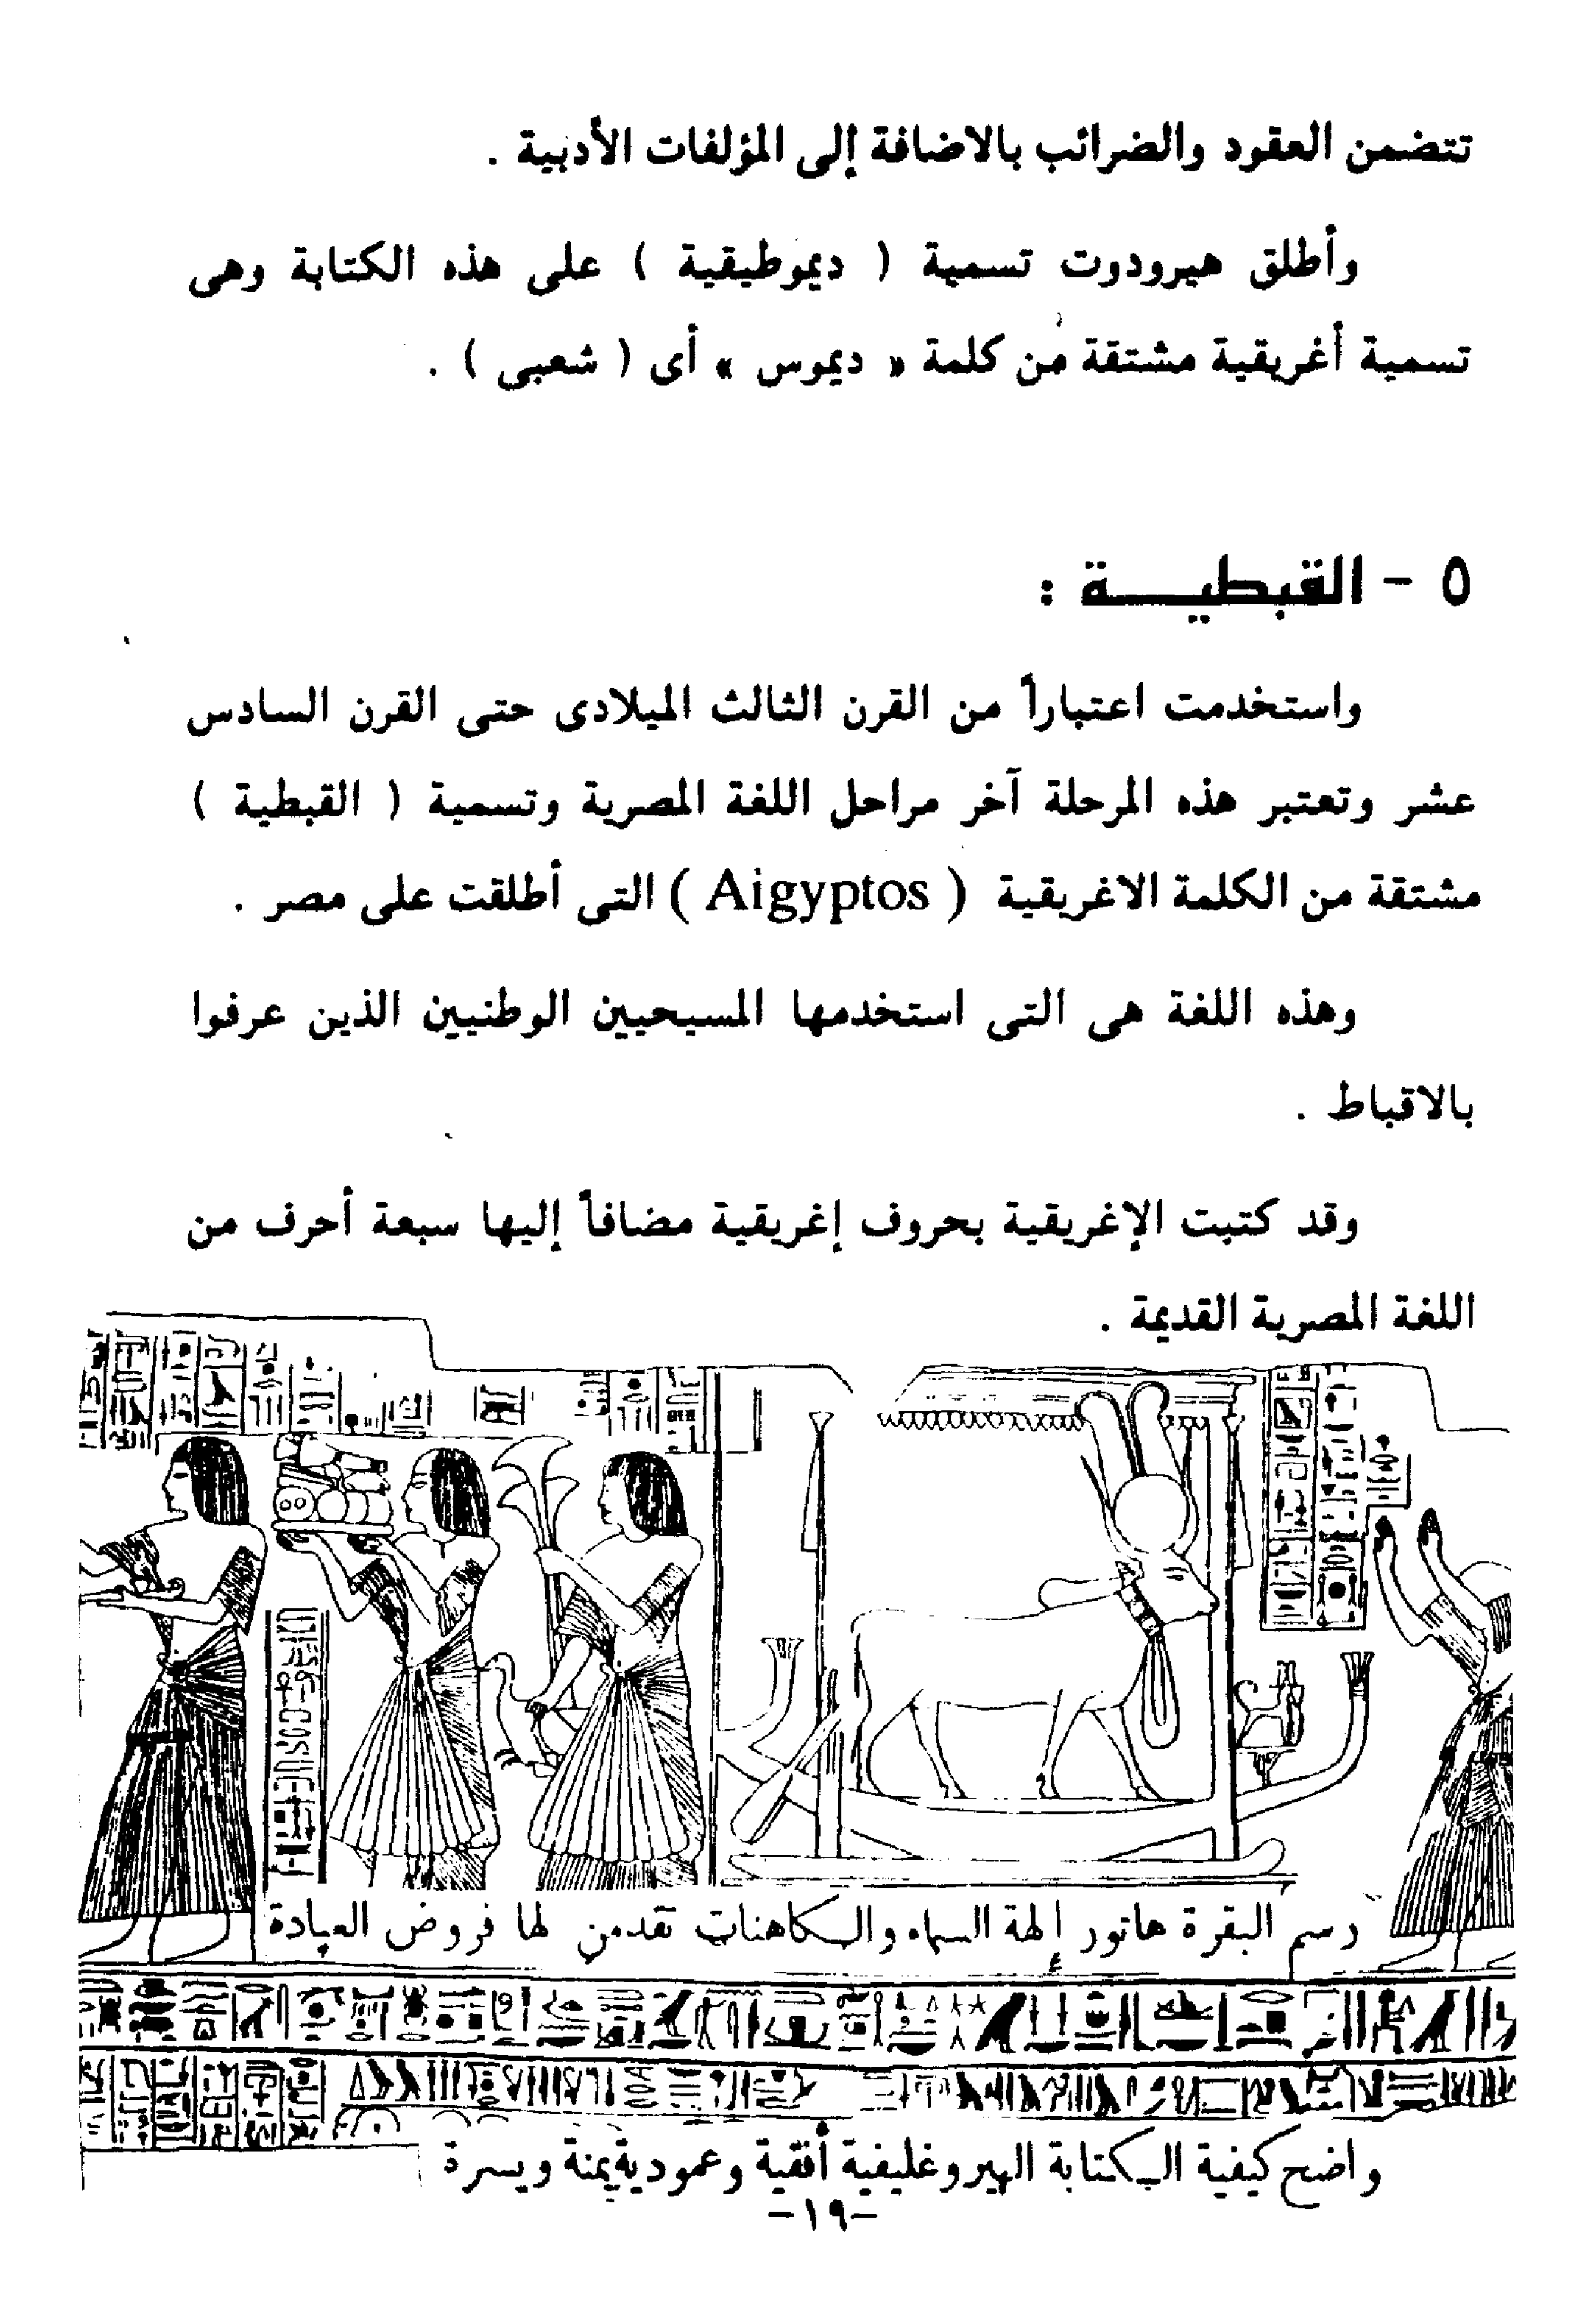 تتضمن العقود والضرائب بالاضافة إلى المؤلفات الأدبية .
وأطلق هيرودوت تسمية ( ديموطيقية ) على هذه الكتابة وهى
تسمية أغريقية مشتقة من كلمة « ديموس » أى ( شعبى ) .
٥ - القبطيـــة :
واستخدمت اعتباراً من القرن الثالث الميلادى حتى القرن السادس
عشر وتعتبر هذه المرحلة آخر مراحل اللغة المصرية وتسمية ( القبطية )
مشتقة من الكلمة الاغريقية ( Aigyptos ) التى أطلقت على مصر .
وهذه اللغة هى التى استخدمها المسيحيين الوطنيين الذين عرفوا
بالاقباط .
وقد كتبت الإغريقية بحروف إغريقية مضافاً إليها سبعة أحرف من
اللغة المصرية القديمة .
رسم البقرة هاتور إلهة السماء والكاهنات تقدمن لها فروض العبادة
واضح كيفية الكتابة الهيروغليفية أفقية وعمودية يمنة ويسرة
-١٩-